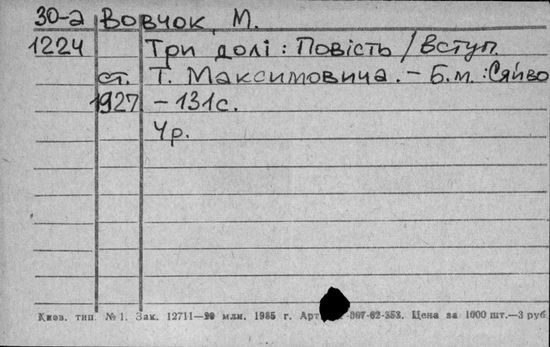 30-а Вовчок, М.
1224 Три долі: Повість / Вступ.
ст. Т. Максимовича. – Б.м.: Сяйво
1927 – 131с.
Чр.
Киев. тип. №1. Зак. 12711— млн. 1985 г. Арт -007-62-353. Цена за 1000 шт.—3 руб